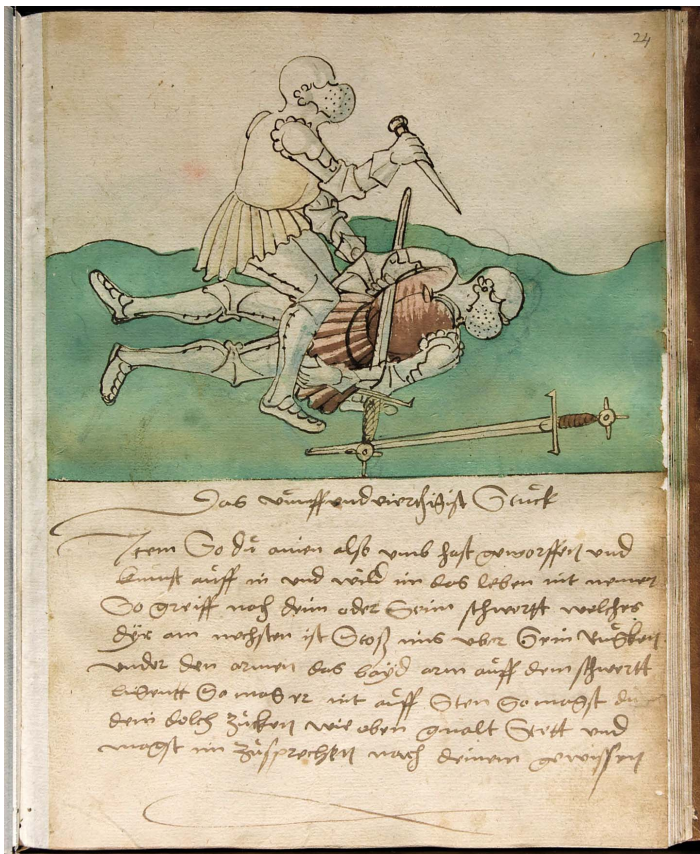 24
Das vünff und vierczigist Stuck
Item So du ainen also umb hast geworffen und
kumst auff in und wild im das leben nit nemen
So greiff nach deim oder Seim schwertt welches
dyr am nechsten ist Stoß ims uber Sein Rucken
under den armen das bayd arm auff dem schwertt
ligentt So mag er nit auff Sten So magst du
dein dolch zucken wie oben gmalt Stett und
magst im zusprechen nach deinem gewissen